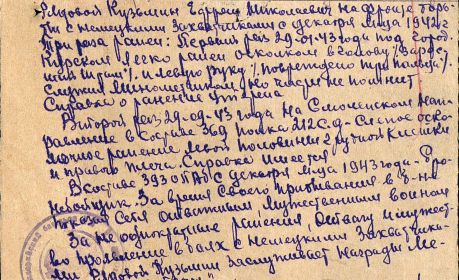 Рядовой Кузьмин Ефрем Николаевич на фронте борь-
бы с немецкими захватчиками с декабря м-ца 1942 г.
Три раза ранен: Первый раз 29-01-43 года под город.
Курском легко ранен осколком в голову /
и левую руку /. повреждено три пальца /.
служил минометчиком, его части не помнит
Справка о ранение утеряна
Второй раз 29-09-43 года на Смоленском нап-
равление в составе 369 полка 212 С.д. - Слепое оско-
лочное ранение левой половины грудной клетки
и правого плеча. Справка имеется
В составе 393 ОПАБ с декабря м-ца 1943 года -
За время своего пребывания в б-не
показал себя отважным, мужественным воином
За неоднократные ранения, отвагу и мужест-
во проявление в боях с немецкими захватчика-
ми Рядовой Кузьмин заслуживает награды: Ме-